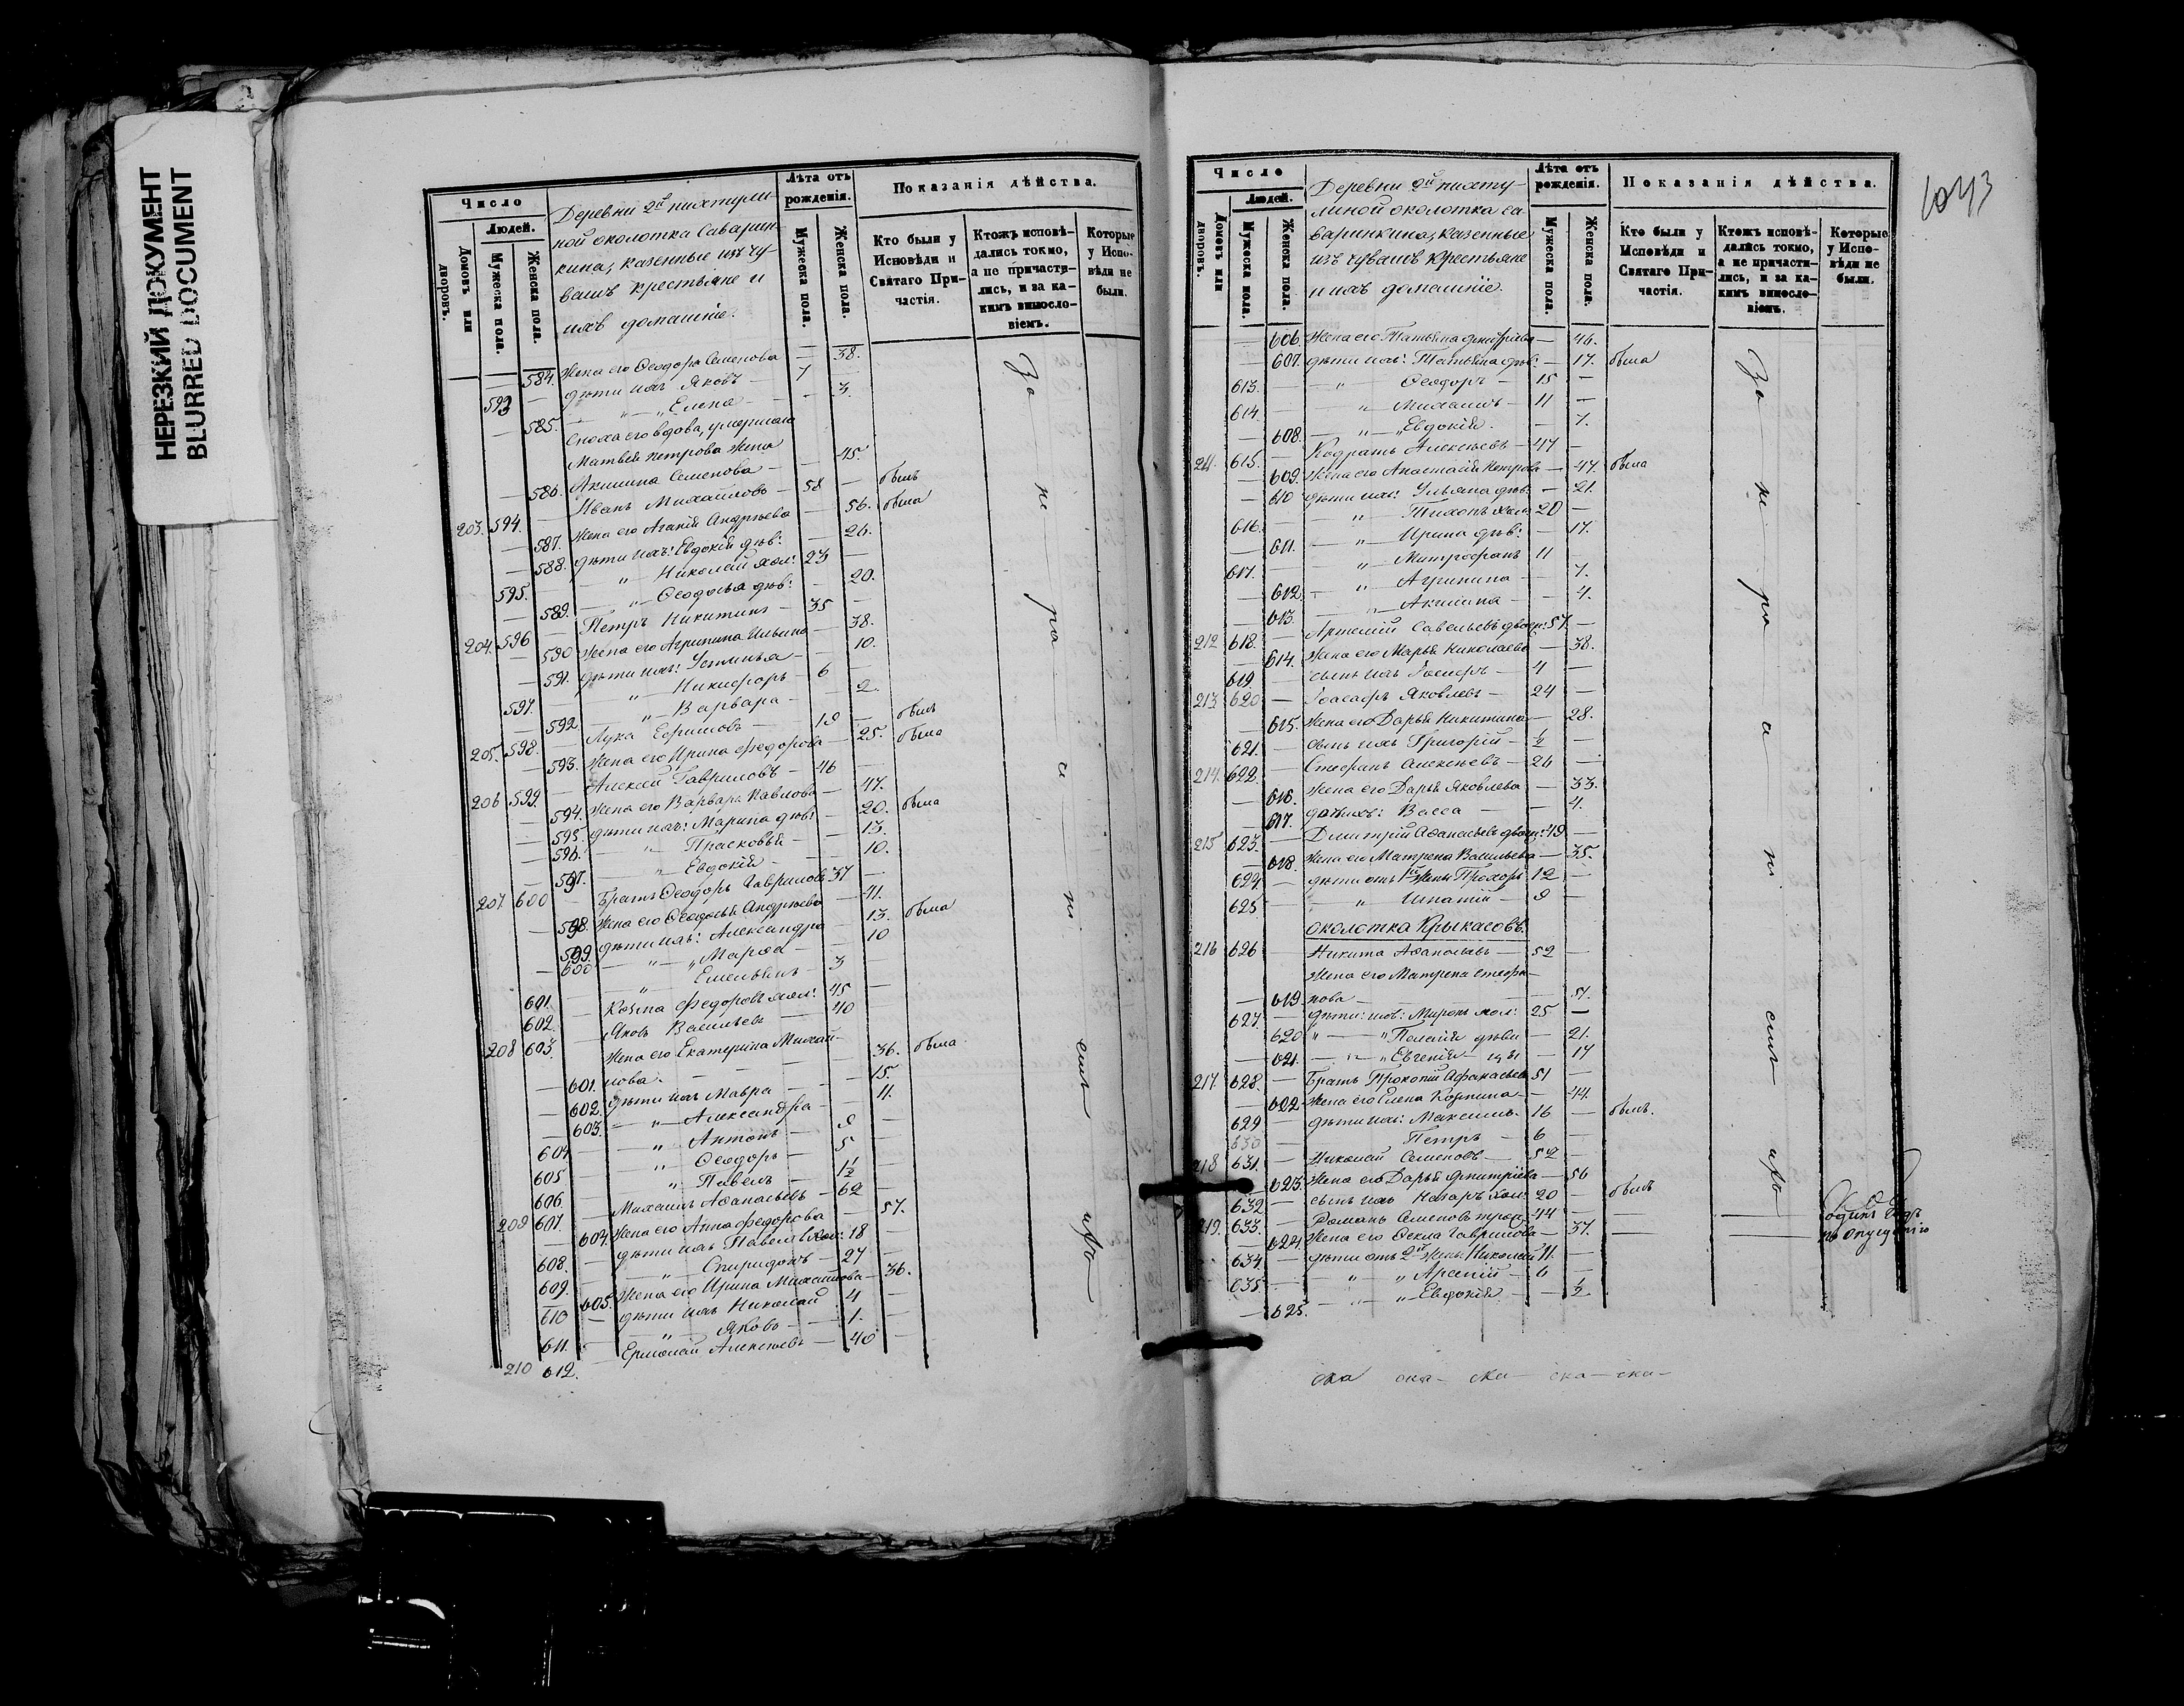 НЕРЕЗКИЙ ДОКУМЕНТ
BLURRED DOCUMENT
Число
Людей.
Домовъ или дворовъ.
Мужеска пола.
Женска пола.
Деревни 2й пихтули-
ной околотка Саварин-
кина, казенные изъ чу-
вашъ крестьяне и
ихъ домашніе.
Лѣта отъ рожденія.
Мужеска пола.
Женска пола.
Показанія дѣйства.
Кто были у Исповѣди и Святаго Причастія.
Ктожъ исповѣдались токмо, а не причастились, и за какимъ винословіемъ.
Которые у Исповѣди не были.
— 584. Жена его Ѳеодора Семенова — 38.
593 — дѣти ихъ Яковъ — 7
— 585. — „ — „ Елена — 3.
Сноха его вдова, умершаго
Матвея Петрова жена
— 586. Акилина Семенова — 45.
203. 594. — Иванъ Михайловъ — 58 — былъ
— 587. Жена его Агаѳія Андреева — 56. была
— 588. дѣти ихъ: Евдокія дѣв: — 26.
595. — „ — Николай хол: 23 —
— 589. — „ — Ѳеодосья дѣв: — 20.
204. 596 — Петръ Никитинъ — 35 —
— 590 Жена его Агрипина Ильина — 38.
— 591. дѣти ихъ: Устинья — 10.
597. — „ — Никифоръ — 6
— 592 — „ — Варвара — 2.
205. 598. — Лука Ефримовъ — 19 — былъ
— 593. Жена его Ирина Федорова — 25. была
206 599. — Алексей Гавриловъ — 46 —
— 594. Жена его Варвара Павлова — 47.
— 595. дѣти ихъ: Марина дѣв: — 20. была
— 596. — „ — Прасковья — 13.
— 597. — „ — Евдокія — 10.
207 600 — Братъ Ѳеодоръ Гавриловъ 37 —
— 598. Жена его Ѳеодосья Андреева — 41.
— 599. дѣти ихъ: Александра — 13. была
— 600 — „ — „ Марѳа — 10
601. — „ — Емельянъ — 3 —
602. — Козма Федоровъ хол: 45 —
208 603. — Яковъ Васильевъ — 40
Жена его Екатерина Михай-
— 601. лова — 36. была
— 602. дѣти ихъ Мавра — 15.
— 603. — „ — Александра — 11.
604 — „ — Антонъ — 9 —
605 — „ — Ѳеодоръ — 5 —
606 — „ — Павелъ — 1½ —
209 607. — Михаилъ Аѳанасьевъ — 62 —
— 604. Жена его Анна Федорова — 57.
608. — дѣти ихъ Павелъ хол: 18 —
609. — „ — Спиридонъ — 27 —
— 605. Жена его Ирина Михайлова — 36.
610 — дѣти ихъ Николай 4 —
611. — „ — Яковъ — 1. —
210 612. — Ермолай Алексеевъ — 40 —
За не ра ч и ніемъ
Число
Людей.
Домовъ или дворовъ.
Мужеска пола.
Женска пола.
Деревни 2й пихту-
линой околотка са-
варинкина, казенные
изъ чувашъ крестьяне
и ихъ домашніе.
Лѣта отъ рожденія.
Мужеска пола.
Женска пола.
Показанія дѣйства.
Кто были у Исповѣди и Святаго Причастія.
Ктожъ исповѣдались токмо, а не причастились, и за какимъ винословіемъ.
Которые у Исповѣди не были.
1043
— 606. Жена его Татьяна Дмитріева — 46.
— 607. дѣти ихъ: Татьяна дѣв: — 17. была
613. — „ Ѳеодоръ — 15 —
614. — „ — Михаилъ — 11 —
— 608. — „ — „ Евдокія. — 7.
211. 615. — Кодратъ Алексеевъ — 47 —
— 609. Жена его Анастасія Петрова — 47. была
— 610 дѣти ихъ: Ульяна дѣв: — 21.
616. — „ Тихонъ хол: 20 —
— 611. — „ — Ирина дѣв: — 17.
617. — „ — Митрофанъ 11 —
— 612. — „ Агрипина — 7.
— 613. — „ — Акилина — 4.
212 618. — Артемій Савельевъ двоеж: 57. —
— 614. Жена его Марья Николаева — 38.
619 — сынъ ихъ Іосифъ — 4 —
213 620 — Іоасафъ Яковлевъ — 24 —
— 615. Жена его Дарья Никитина — 28.
621. — сынъ ихъ Григорій — ½ —
214. 622. — Стефанъ Алексеевъ — 26 —
— 616. Жена его Дарья Яковлева — 33.
— 617. дочь ихъ: Васса — 4.
215 623. — Дмитрій Аѳанасьевъ двоеж: 49 —
— 618. Жена его Матрена Васильева — 35.
624. — дѣти отъ 1й жены Прохоръ 12 —
625 — „ Игнатій — 9 —
околотка Крыкасовъ.
216 626 — Никита Аѳанасьевъ — 52 —
Жена его Матрена Стефа-
— 619 нова — 51.
627. — дѣти: ихъ: Миронъ хол: 25 —
620 „ — „ Пелагія дѣви — 21.
— 621. — „ — „ Евгенія — 17
217. 628 — Братъ Прокопій Афанасьевъ 51 —
— 622 Жена его Елена Козмина — 44.
629 — дѣти ихъ: Максимъ — 16 — былъ.
630 — Петръ — 6 —
218 631. — Николай Семеновъ — 52 —
— 623. Жена его Дарья Дмитріева — 56
632 — сынъ ихъ Назаръ хол: 20 — былъ
219. 633 — Романъ Семеновъ троеж: 44 —
— 624. Жена его Ѳекла Гаврилова — 37. —
634. — дѣти отъ 2й жены Николай 11. —
635. — „ „ Арсеній — 6 —
— 625. — „ — „ Евдокія — ½
За не ра ч и ніемъ